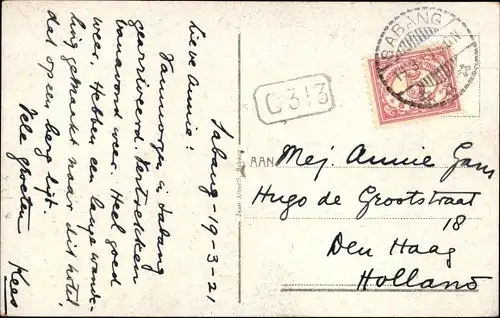 Sabang - 19-3-21
Lieve Annie!
Vanmorgen in Sabang
gearriveerd. Vertrekken
vanavond weer. Heel goed
weer. Hebben een lange wande-
ling gemaakt naar dit hotel
dat op een berg ligt.
Vele groeten
Kees
SABANG
C 313
AAN
Mej. Annie Gans
Hugo de Grootstraat
18
Den Haag
Holland